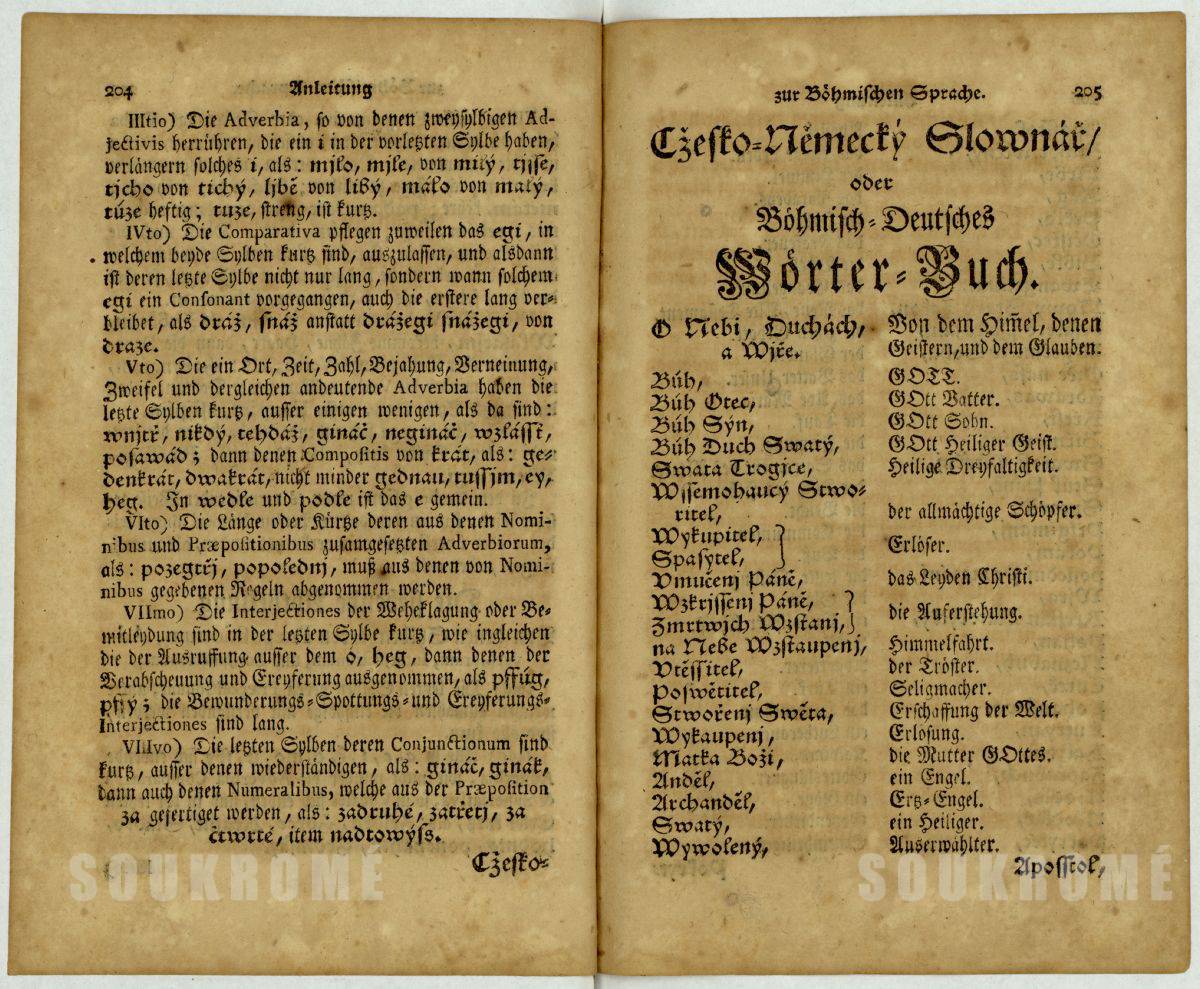 204 Anleitung
IIItio) Die Adverbia, so von denen zweysylbigen Ad-
jectivis herrühren, die ein i in der vorletzten Sylbe haben,
verlängern solches i, als: mjlo, mjle, von milý, tjsse,
tjcho von tichý, ljbě von libý, málo von malý,
túze heftig; tuze, streng, ist kurtz.
IVto) Die Comparativa pflegen zuweilen das egi, in
welchem beyde Sylben kurtz sind, auszulassen, und alsdann
ist deren letzte Sylbe nicht nur lang, sondern wann solchem
egi ein Consonant vorgegangen, auch die erstere lang ver-
bleibet, als dráž, snáž anstatt drážegi snážegi, von
draze.
Vto) Die ein Ort, Zeit, Zahl, Bejahung, Verneinung,
Zweifel und dergleichen andeutende Adverbia haben die
letzte Sylben kurtz, ausser einigen wenigen, als da sind:
wnjtř, nikdý, tehdáž, gináč, negináč, wzlásst,
posawád; dann denen Compositis von krát, als: ge-
denkrát, dwakrát, nicht minder gednau, tussjm, ey,
heg. In wedle und podle ist das e gemein.
VIto) Die Länge oder Kürtze deren aus denen Nomi-
nibus und Præpositionibus zusamgesetzten Adverbiorum,
als: pozegtřj, popolednj, muß aus denen von Nomi-
nibus gegebenen Regeln abgenommen werden.
VIImo) Die Interjectiones der Weheklagung oder Be-
mitleydung sind in der letzten Sylbe kurtz, wie ingleichen
die der Ausruffung ausser dem o, heg, dann denen der
Verabscheuung und Ereyferung ausgenommen, als pffúg,
pfiý; die Bewunderungs-Spottungs-und Ereyferungs-
Interjectiones sind lang.
VIIIvo) Die letzten Sylben deren Conjunctionum sind
kurtz, ausser denen wiederständigen, als: gináč, ginák,
dann auch denen Numeralibus, welche aus der Præposition
za gefertiget werden, als: zadruhé, zatřetj, za
čtwrté, item nadtowýss.
Cžesko-
zur Böhmischen Sprache. 205
Cžesko-Německý Slownář/
oder
Böhmisch-Deutsches
Wörter-Buch.
O Nebi, Duchách, Von dem Him̄el, denen
a Wjře. Geistern, und dem Glauben.
Bůh, GOTT.
Bůh Otec, GOtt Vatter.
Bůh Syn, GOtt Sohn.
Bůh Duch Swatý, GOtt Heiliger Geist.
Swata Trogjce, Heilige Dreyfaltigkeit.
Wssemohaucý Stwo-
ritel, der allmächtige Schöpfer.
Wykupitel, }
Spasytel, } Erlöser.
Vmučenj Páně, das Leyden Christi.
Wzkrjssenj Páně, }
Zmrtwjch Wzstanj, } die Auferstehung.
na Nebe Wzstaupenj, Himmelfahrt.
Vtěssitel, der Tröster.
Poswětitel, Seligmacher.
Stwořenj Swěta, Erschaffung der Welt.
Wykaupenj, Erlösung.
Matka Boži, die Mutter GOttes.
Anděl, ein Engel.
Archanděl, Ertz-Engel.
Swatý, ein Heiliger.
Wywolený, Auserwählter.
Aposstol,
SOUKROMÉ SOUKROMÉ